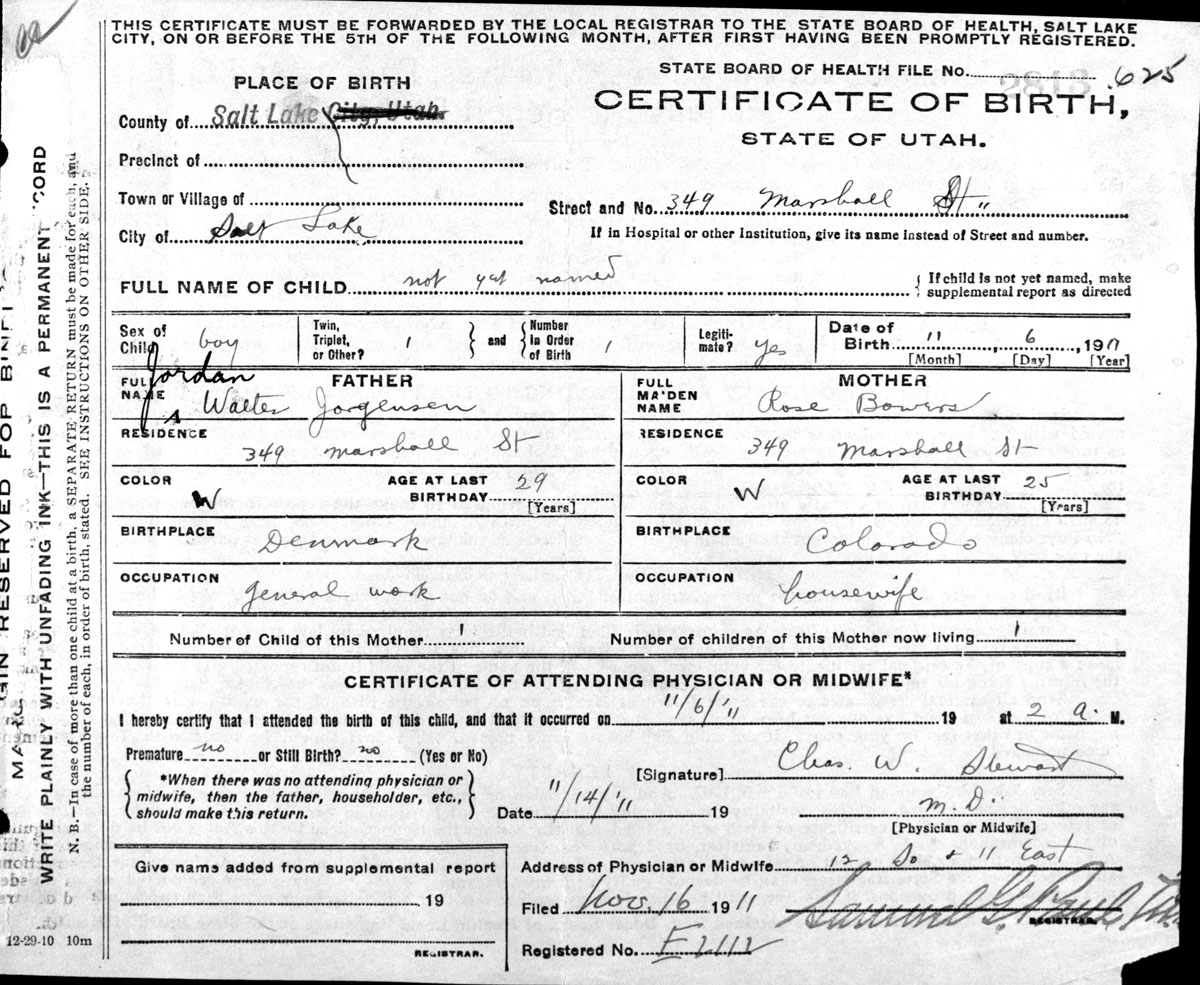 THIS CERTIFICATE MUST BE FORWARDED BY THE LOCAL REGISTRAR TO THE STATE BOARD OF HEALTH, SALT LAKE
CITY, ON OR BEFORE THE 5TH OF THE FOLLOWING MONTH, AFTER FIRST HAVING BEEN PROMPTLY REGISTERED.
PLACE OF BIRTH
STATE BOARD OF HEALTH FILE No. 625
CERTIFICATE OF BIRTH,
STATE OF UTAH.
County of Salt Lake City, Utah.
Precinct of
Town or Village of
Street and No. 349 Marshall St.
City of Salt Lake
If in Hospital or other Institution, give its name instead of Street and number.
FULL NAME OF CHILD not yet named
If child is not yet named, make
supplemental report as directed
Sex of Child boy
Twin, Triplet, or Other? 1 and Number In Order of Birth 1
Legiti-mate? yes
Date of Birth 11 6, 1911
[Month] [Day] [Year]
FATHER
FULL NAME Jordan Walter Jorgensen
MOTHER
FULL MAIDEN NAME Rose Bowers
RESIDENCE 349 Marshall St
RESIDENCE 349 Marshall St
COLOR W AGE AT LAST BIRTHDAY 29 [Years]
COLOR W AGE AT LAST BIRTHDAY 25 [Years]
BIRTHPLACE Denmark
BIRTHPLACE Colorado
OCCUPATION general work
OCCUPATION housewife
Number of Child of this Mother 1 Number of children of this Mother now living 1
CERTIFICATE OF ATTENDING PHYSICIAN OR MIDWIFE*
I hereby certify that I attended the birth of this child, and that it occurred on 11/6/'11 19 at 2 a. M.
Premature no or Still Birth? no (Yes or No)
*When there was no attending physician or
midwife, then the father, householder, etc.,
should make this return.
[Signature] Chas. W. Stewart
Date 11/14/'11 19 M.D.
[Physician or Midwife]
Give name added from supplemental report
19
REGISTRAR.
Address of Physician or Midwife 12 So + 11 East
Filed Nov. 16 1911 Samuel G. Paul
REGISTRAR.
Registered No. E2112
12-29-10 10m
WRITE PLAINLY WITH UNFADING INK—THIS IS A PERMANENT
N. B.—In case of more than one child at a birth, a SEPARATE RETURN must be made for each, and
the number of each, in order of birth, stated. SEE INSTRUCTIONS ON OTHER SIDE.